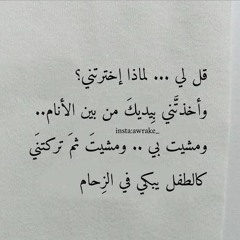 قل لي ... لماذا إخترتني؟
وأخذتَّني بِيديكَ من بين الأنام..
insta:awrake_
ومشيت بي .. ومشيتَ ثمَ تركتنَي
كالطفل يبكي في الزِحام